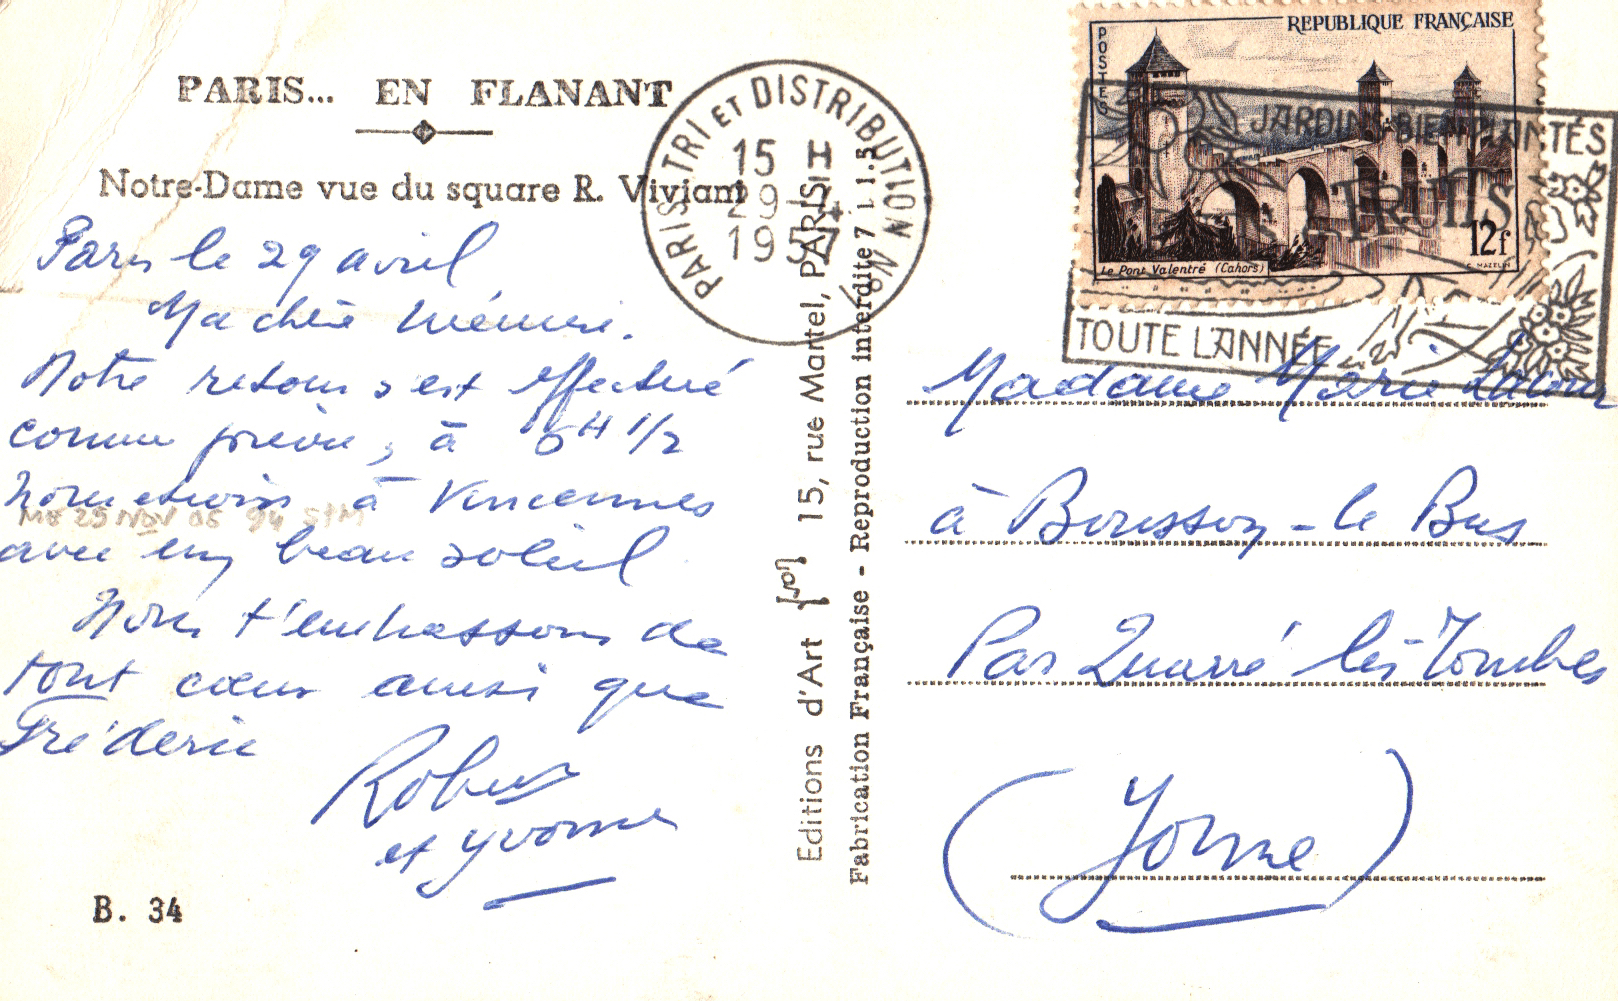 PARIS... EN FLANANT
Notre-Dame vue du square R. Viviani
Paris le 29 avril
Ma chère Mémère.
Notre retour s'est effectué
comme prévu, à 6H 1/2
Nous étions à Vincennes
avec un beau soleil
Nous t'embrassons de
tout cœur ainsi que
Frédéric
Robert
et Yvonne
B. 34
PARIS TRI ET DISTRIBUTION
15 H
29 - 4
1957
Editions d'Art 15, rue Martel, PARIS
Fabrication Française - Reproduction interdite 7 1 1.5
REPUBLIQUE FRANÇAISE
POSTES
12f
Le Pont Valentré (Cahors)
C. MAZELIN
JARDINS BIEN PLANTÉS
FRUITS
TOUTE L'ANNÉE
Madame Marie
à Bousson-le Bas
Par Quarré les Tombes
(Yonne)